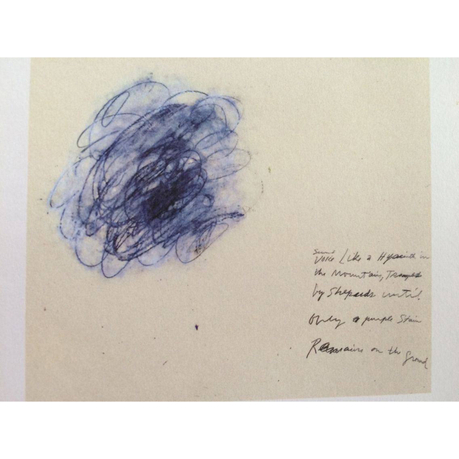 Like a Hyacinth in
the Mountains, Trampled
by Shepards until
Only a purple Stain
Remains on the Ground